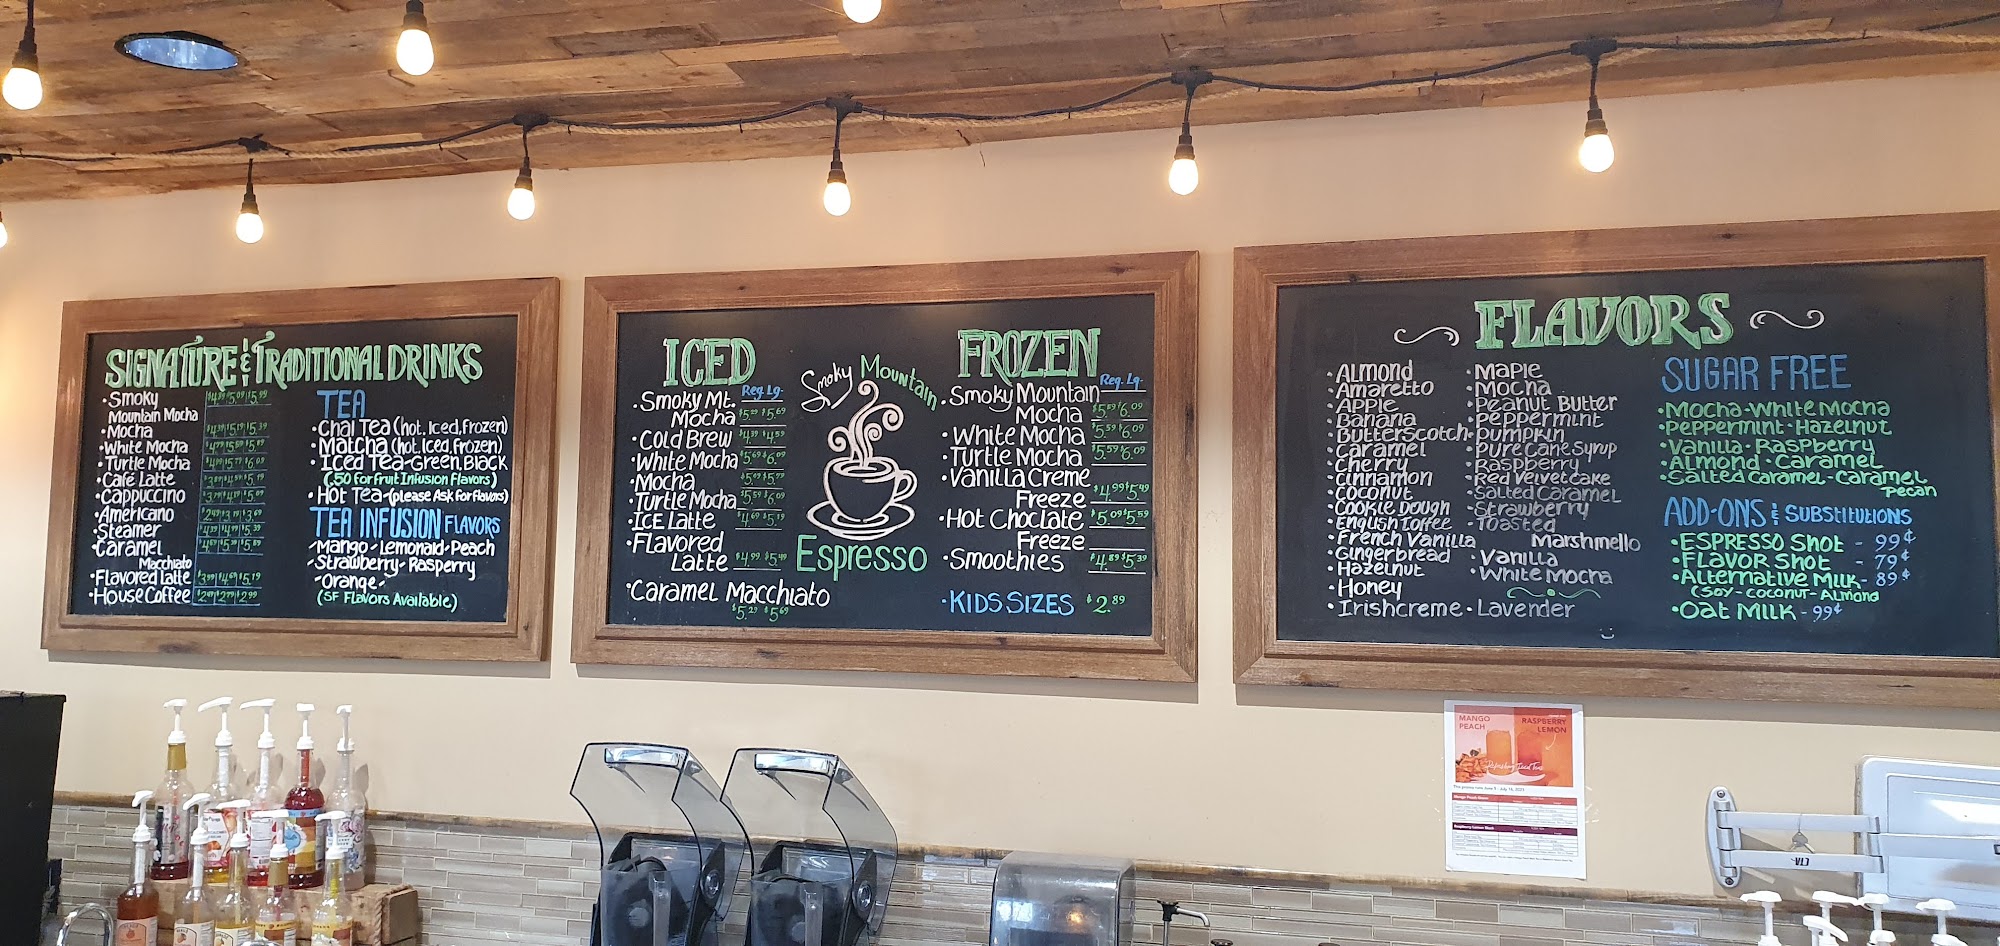 SIGNATURE & TRADITIONAL DRINKS
• Smoky
Mountain Mocha
• Mocha
• White Mocha
• Turtle Mocha
• Café Latte
• Cappuccino
• Americano
• Steamer
• Caramel
Macchiato
• Flavored Latte
• House Coffee
TEA
• Chai Tea (hot, Iced, frozen)
• Matcha (hot, Iced, frozen)
• Iced Tea-Green, Black
(.50 for Fruit Infusion Flavors)
• Hot Tea-(please Ask for flavors)
TEA INFUSION FLAVORS
- Mango - Lemonaid - Peach
- Strawberry - Raspperry
- Orange -
(SF Flavors Available)
ICED
Reg. Lg.
• Smoky Mt.
Mocha $5.29 $5.69
• Cold Brew $4.39 $4.59
• White Mocha $5.69 $6.09
• Mocha
• Turtle Mocha $5.59 $6.09
• ICE Latte $4.69 $5.19
• Flavored
Latte $4.99 $5.49
• Caramel Macchiato
$5.29 $5.69
Smoky Mountain
Espresso
FROZEN
Reg. Lg.
• Smoky Mountain
Mocha $5.59 $6.09
• White Mocha $5.59 $6.09
• Turtle Mocha $5.59 $6.09
• Vanilla Creme
Freeze $4.99 $5.49
• Hot Choclate $5.09 $5.59
Freeze
• Smoothies $4.89 $5.39
• KIDS SIZES $2.89
FLAVORS
• Almond
• Amaretto
• Apple
• Banana
• Butterscotch
• Caramel
• Cherry
• Cinnamon
• Coconut
• Cookie Dough
• English Toffee
• French Vanilla
• Gingerbread
• Hazelnut
• Honey
• Irishcreme
• Maple
• Mocha
• Peanut Butter
• Peppermint
• Pumpkin
• Pure Cane Syrup
• Raspberry
• Red Velvet cake
• Salted Caramel
• Strawberry
• Toasted
Marshmello
• Vanilla
• White Mocha
• Lavender
SUGAR FREE
• Mocha - White Mocha
• Peppermint - Hazelnut
• Vanilla - Raspberry
• Almond • Caramel
• Salted Caramel - Caramel
Pecan
ADD-ONS & SUBSTITUTIONS
• ESPRESSO Shot - 99¢
• FLAVOR SHOT - 79¢
• Alternative Milk - 89¢
(Soy - Coconut - Almond
• Oat Milk - 99¢
MANGO
PEACH
RASPBERRY
LEMON
Refreshing Iced Teas